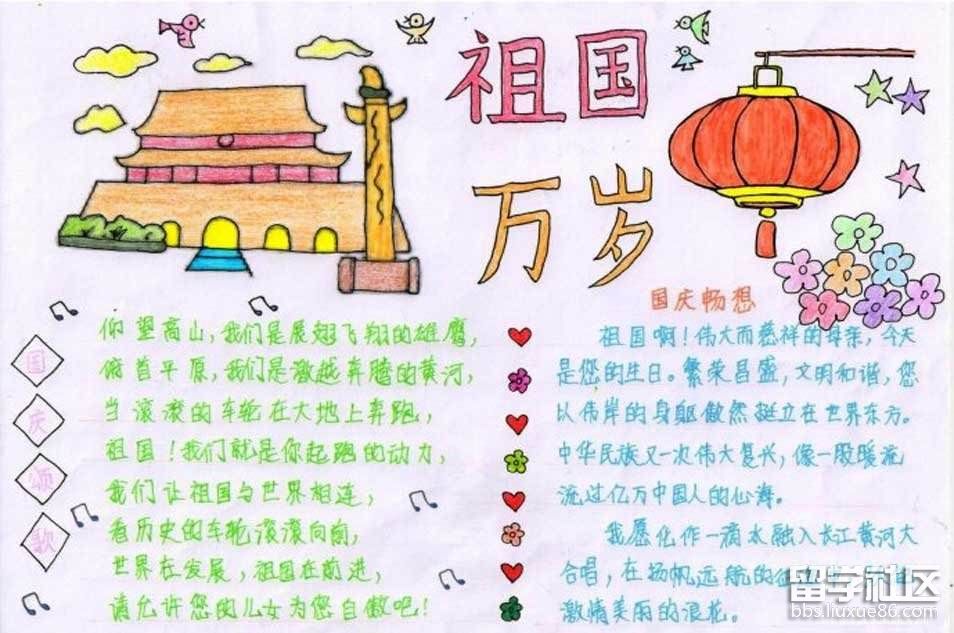 祖国
万岁
国庆颂歌
仰望高山,我们是展翅飞翔的雄鹰,
俯首平原,我们是激越奔腾的黄河,
当滚滚的车轮在大地上奔跑,
祖国!我们就是你起跑的动力,
我们让祖国与世界相连,
看历史的车轮滚滚向前,
世界在发展,祖国在前进,
请允许您的儿女为您自傲吧!
国庆畅想
祖国啊!伟大而慈祥的母亲,今天
是您的生日。繁荣昌盛,文明和谐,您
以伟岸的身躯傲然挺立在世界东方。
中华民族又一次伟大复兴,像一股暖流
流过亿万中国人的心海。
我愿化作一滴水融入长江黄河大
合唱,在扬帆远航的
激情美丽的浪花。
留学社区
bbs.liuxue86.com